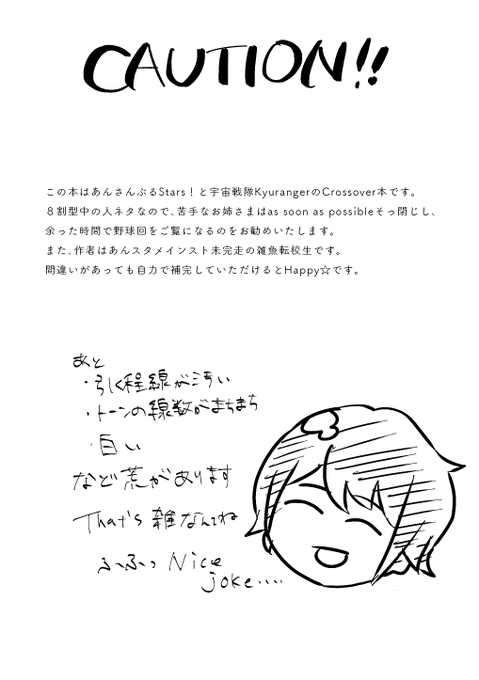 CAUTION!!
この本はあんさんぶるStars！と宇宙戦隊KyurangerのCrossover本です。
８割型中の人ネタなので、苦手なお姉さまはas soon as possibleそっ閉じし、
余った時間で野球回をご覧になるのをお勧めいたします。
また、作者はあんスタメインスト未完走の雑魚転校生です。
間違いがあっても自力で補完していただけるとHappy☆です。
あと
・引く程線が汚い
・トーンの線数がまちまち
・白い
など荒があります
That's 雑なんてね
ふふっ Nice
joke....